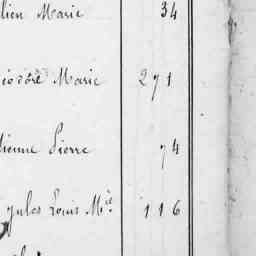 lien Marie 34
éodore Marie 271
tienne Pierre 74
Jules Louis Mie 116